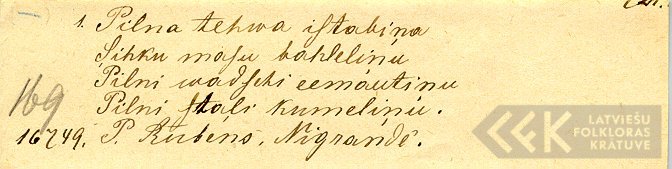 1. Pilna tehwa istabiņa
Sihku masu bahleliņu
Pilni wadschi eemáutiņu
Pilni stáli kumeliņu.
169
16749. P. Rubéns. Nigrandé.
LATVIEŠU
FOLKLORAS
KRĀTUVE